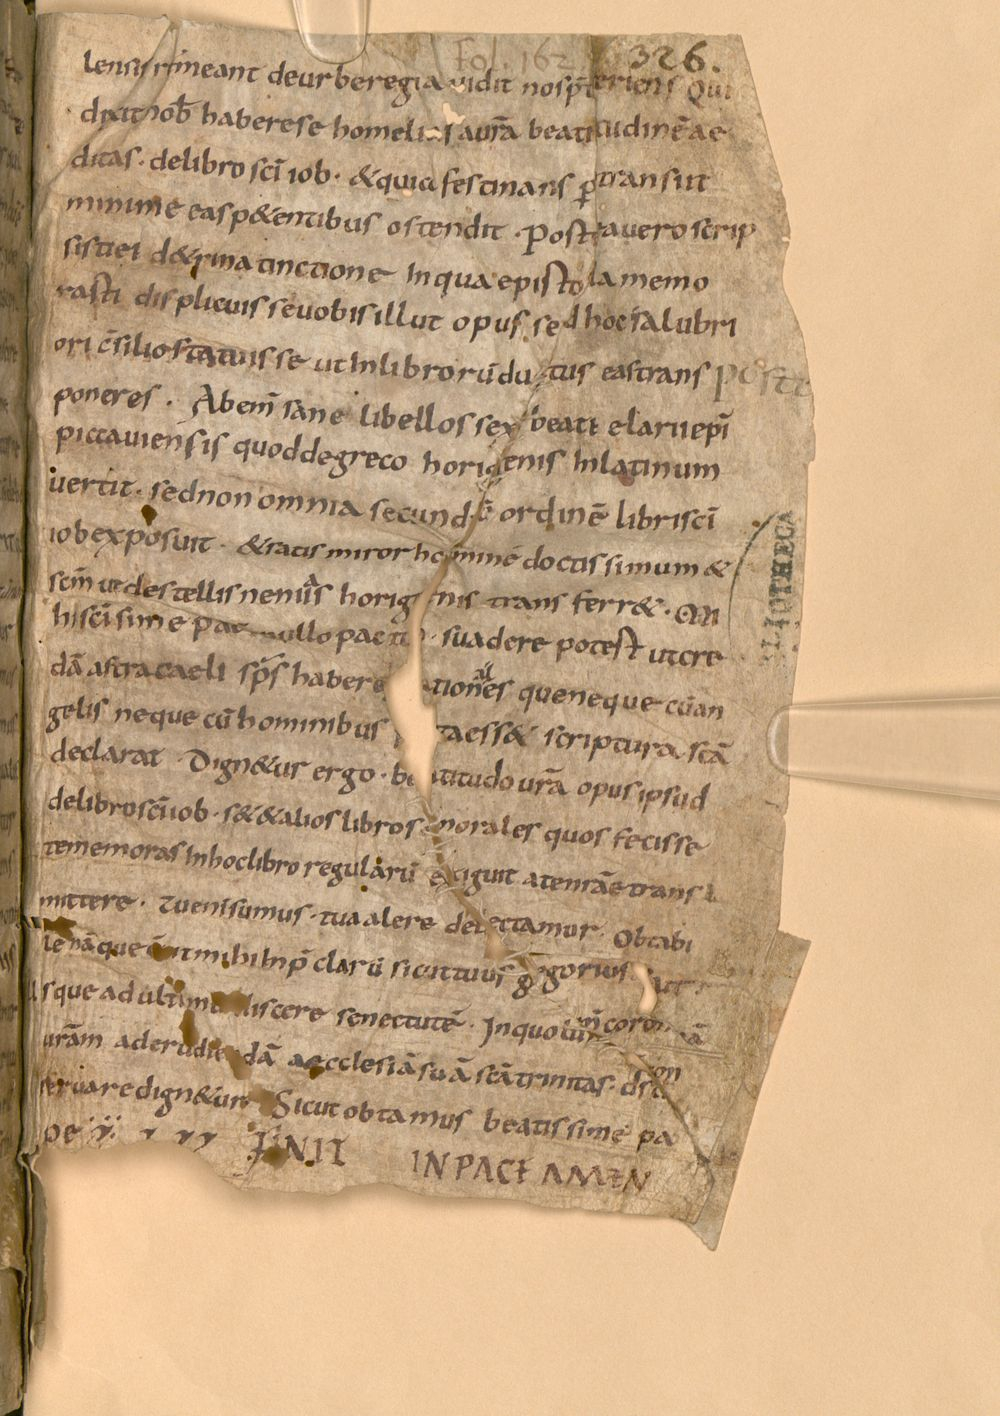 Fol. 162 326.
lensi rimeant deurbe regia vidit nosp̄teriens Qui
dicit iob haberese homelias aur̄a beatitudinē ae
ditas · delibro sc̄i iob · &quia festinans ꝑtransiit
minime easp&entibus ostendit · Postea vero scrip
sistiei d&rina tinctione In qua epistola memo
rasti displicuisse uobis illut opus sed hoc salubri
ori c̄silio statuisse ut In librorū ductus eas trans
poneres · Abem̄ sane libellos sex beati elarii ep̄i
pictauiensis quod de greco horigenis In latinum
uertit · sed non omnia secundū ordinē libri sc̄i
iob exposuit · & satis miror hominē doctissimum &
sc̄m ut de stellis nenias horigenis trans ferr& ·
hi sc̄issime pater nullo pacto · suadere potest ut cre
dā astra caeli sp̄s habere rationales que neque cū an
gelis neque cū hominibus facta ess& scriptura sc̄ā
declarat Dign&us ergo · beatitudo ur̄a opus ipsud
de libro sc̄i iob · s& & alios libros morales quos fecisse
te memoras In hoc libro regularū exiguit atenrāe trans
mittere · Tuenisumus · tua alere delectamur Obtabi
le nāque ē mihi In p̄clarū sicut tuus gregorius
usque ad ultimā discere senectutē · In quo
ur̄am ad erudiendā aecclesiā suā sc̄ā trinitas · ds̄
seruare dign&ur Sicut obtamus beatissime pa
pe FINIT IN PACE AMEN